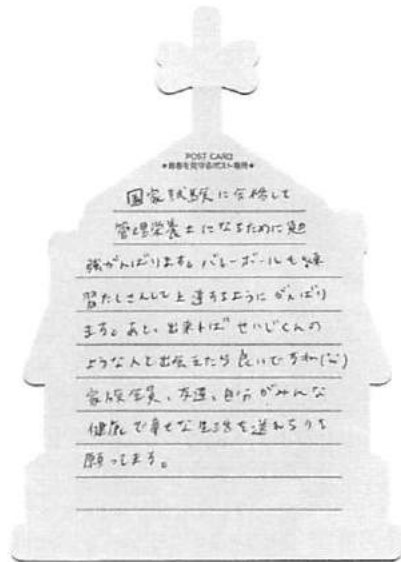 POST CARD
国家試験に合格して
管理栄養士になるために勉
強がんばります。バレーボールも練
習たくさんして上達するようにがんばり
ます。あと、出来れば せいじくんの
ような人と出会えたら良いですね(^^)
家族全員、友達、自分がみんな
健康で幸せな生活を送れるよう
願ってます。